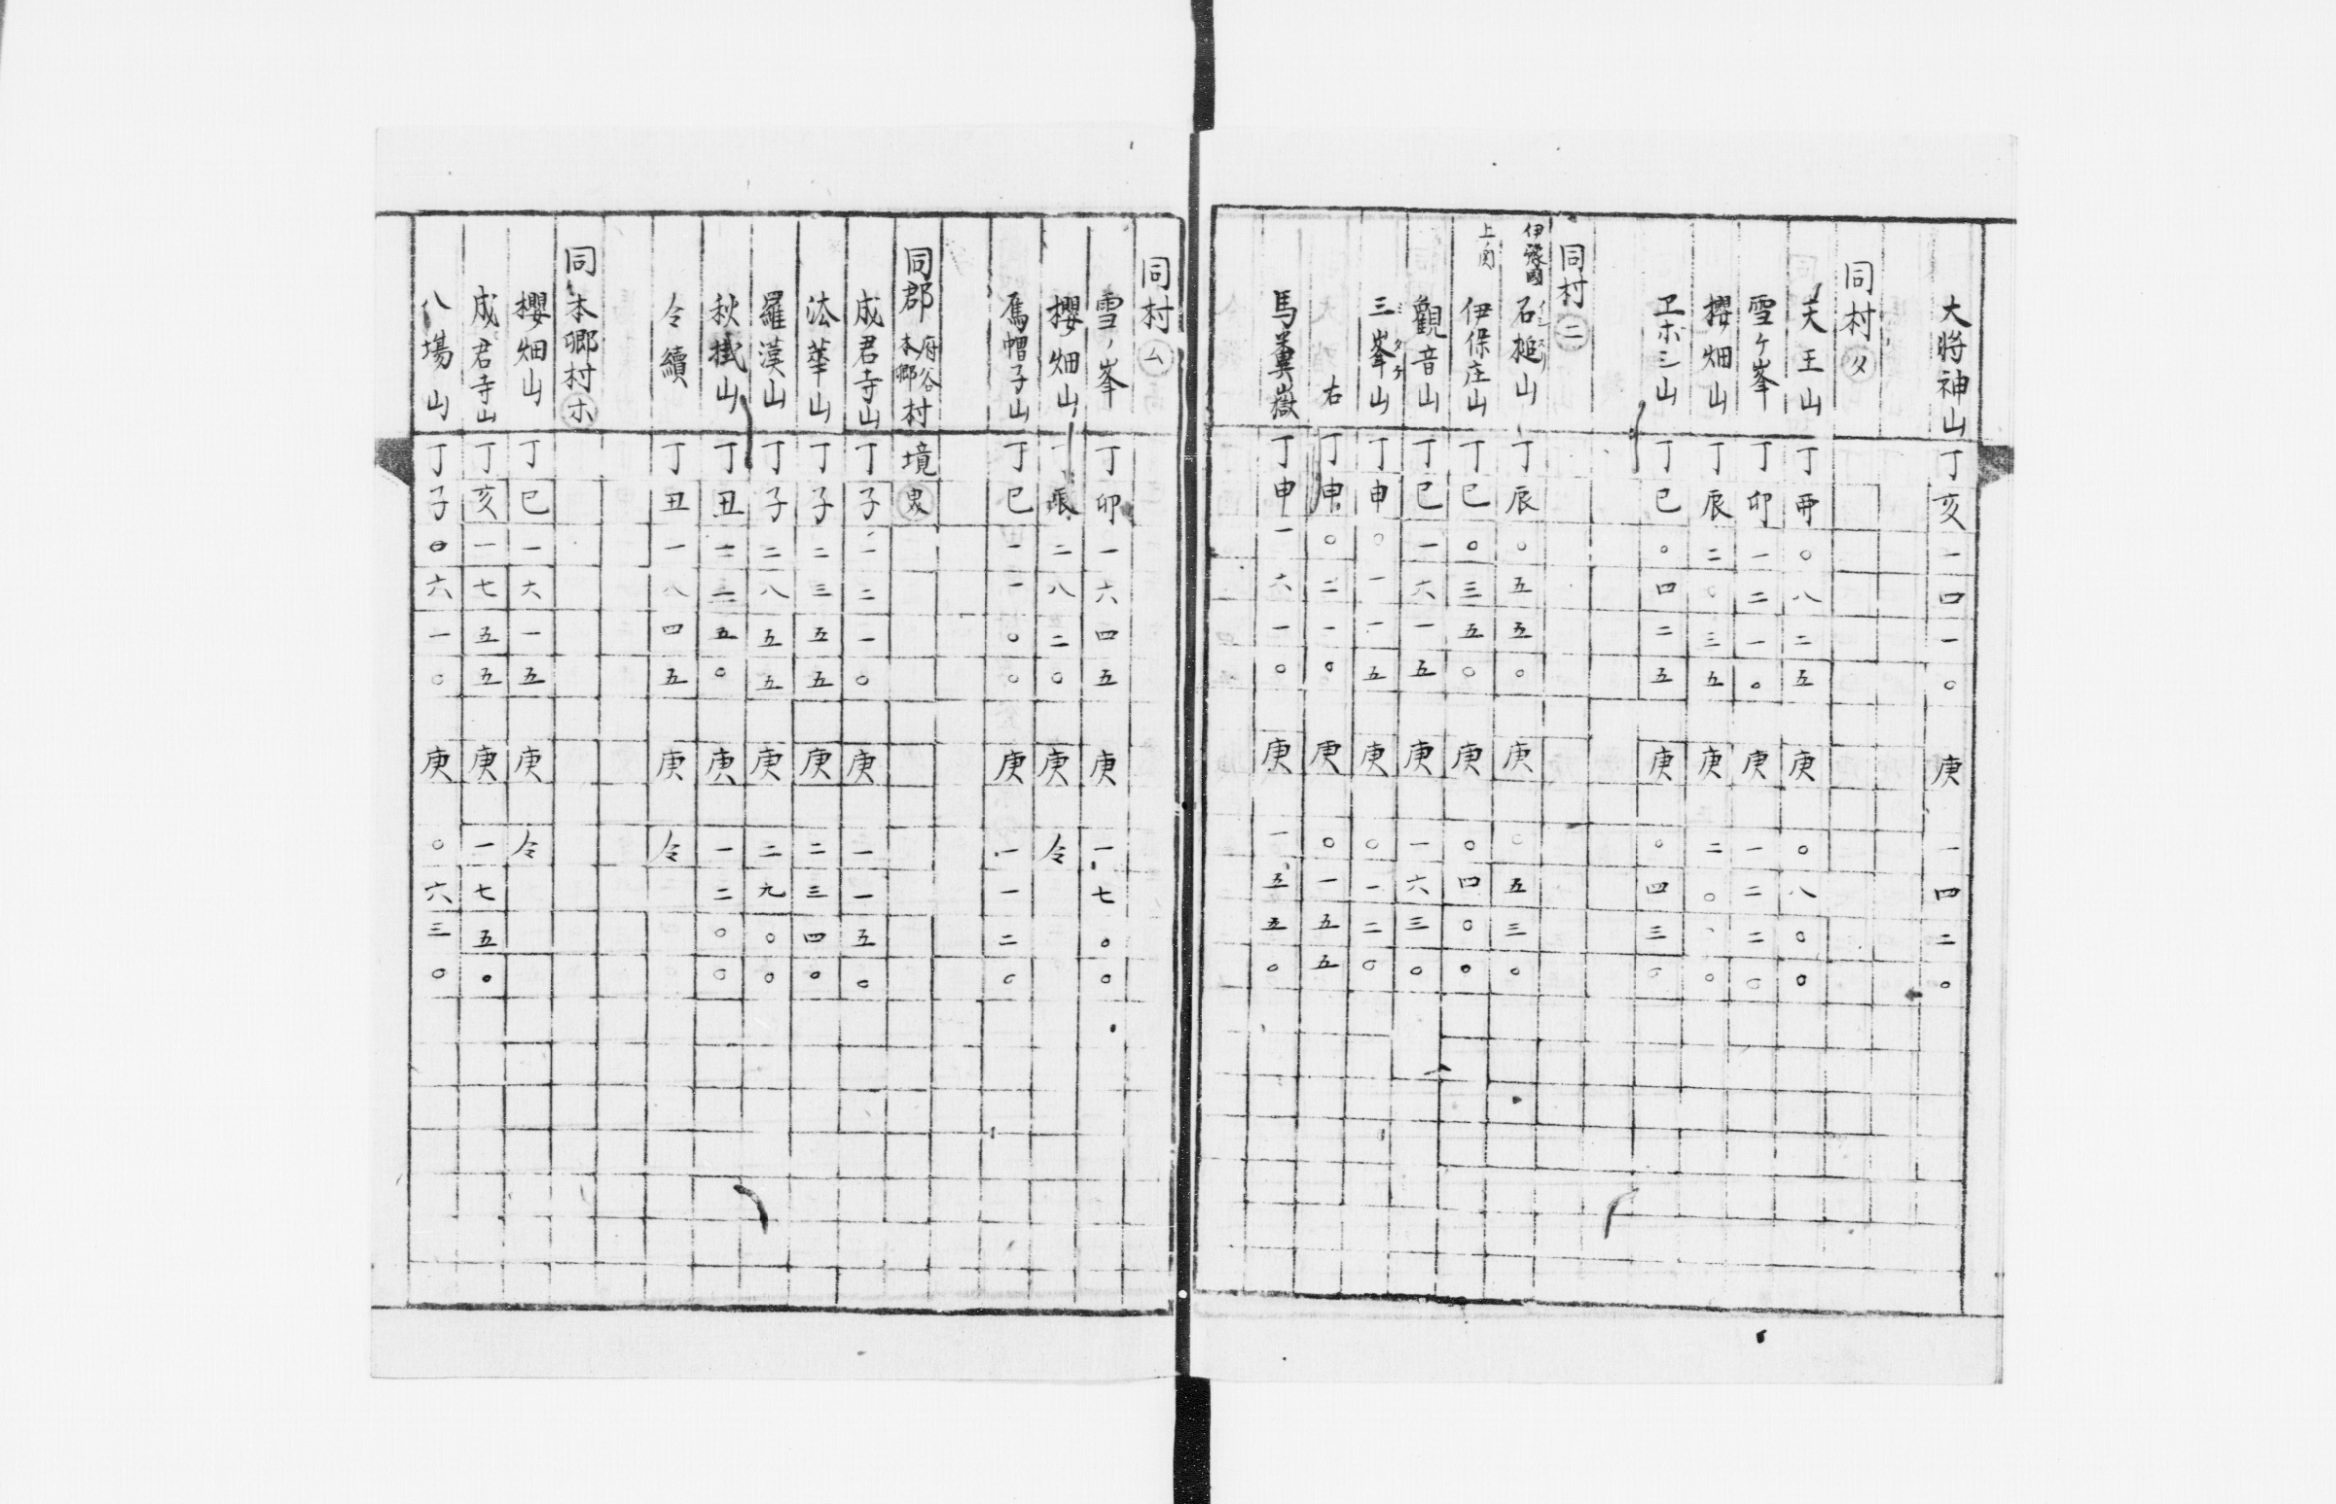 大将神山 丁亥 一四一〇 庚 一四二〇
同村㋦
天王山 丁酉 〇八二五 庚 〇八〇〇
雪ケ峯 丁卯 一二一〇 庚 一二二〇
櫻畑山 丁辰 二〇三五 庚 二〇〇
ヱボシ山 丁巳 〇四二五 庚 〇四三〇
同村㊁
伊豫國 石槌山 丁辰 〇五五〇 庚 〇五三〇
上関 伊保庄山 丁巳 〇三五〇 庚 〇四〇〇
觀音山 丁巳 一六一五 庚 一六三〇
三峯山 丁申 〇一一五 庚 〇一二〇
右 丁申 〇二一〇 庚 〇一五五
馬糞嶽 丁申 一六一〇 庚 一五五〇
同村㋰
雪ノ峯 丁卯 一六四五 庚 一七〇〇
櫻畑山 丁辰 二八二〇 庚 仝
烏帽子山 丁巳 一一〇〇 庚 一一二〇
同郡 府谷 本郷 村境
成君寺山 丁子 一二一〇 庚 一一五〇
法華山 丁子 二三五五 庚 二三四〇
羅漢山 丁子 二八五五 庚 二九〇〇
秋掛山 丁丑 一二五〇 庚 一二〇〇
仝續 丁丑 一八四五 庚 仝
同本郷村㋭
櫻畑山 丁巳 一六一五 庚 仝
成君寺山 丁亥 一七五五 庚 一七五〇
八塲山 丁子 〇六一〇 庚 〇六三〇